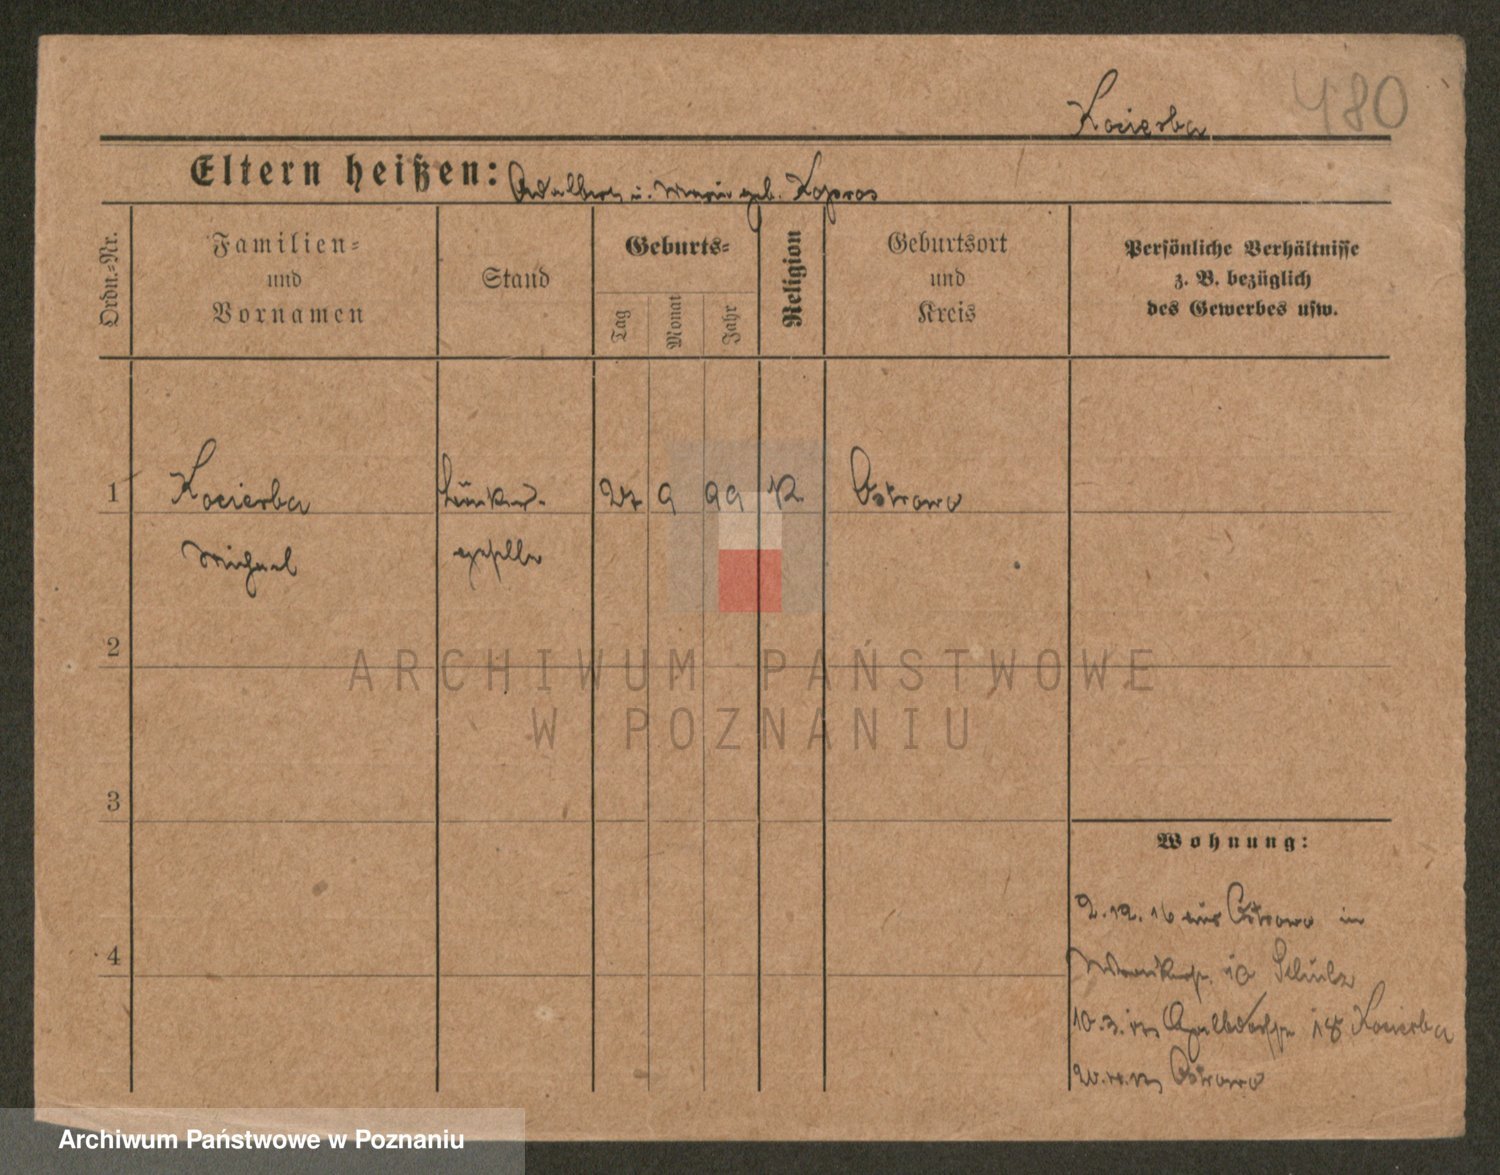 480
Kocierba
Eltern heißen: Adalbert u. Marie geb. Kopras
Ordn.-Nr.
Familien-
und
Vornamen
Stand
Geburts-
Tag
Monat
Jahr
Religion
Geburtsort
und
Kreis
Persönliche Verhältnisse
z. B. bezüglich
des Gewerbes usw.
1 Kocierba 27 9 99 K Ostrowo
Michael geselle
2
ARCHIWUM PAŃSTWOWE
W POZNANIU
3
Wohnung:
2.12.16 aus Ostrowo in
4
10 Schulz
10.3. 18 Kocierba
Ostrowo
Archiwum Państwowe w Poznaniu